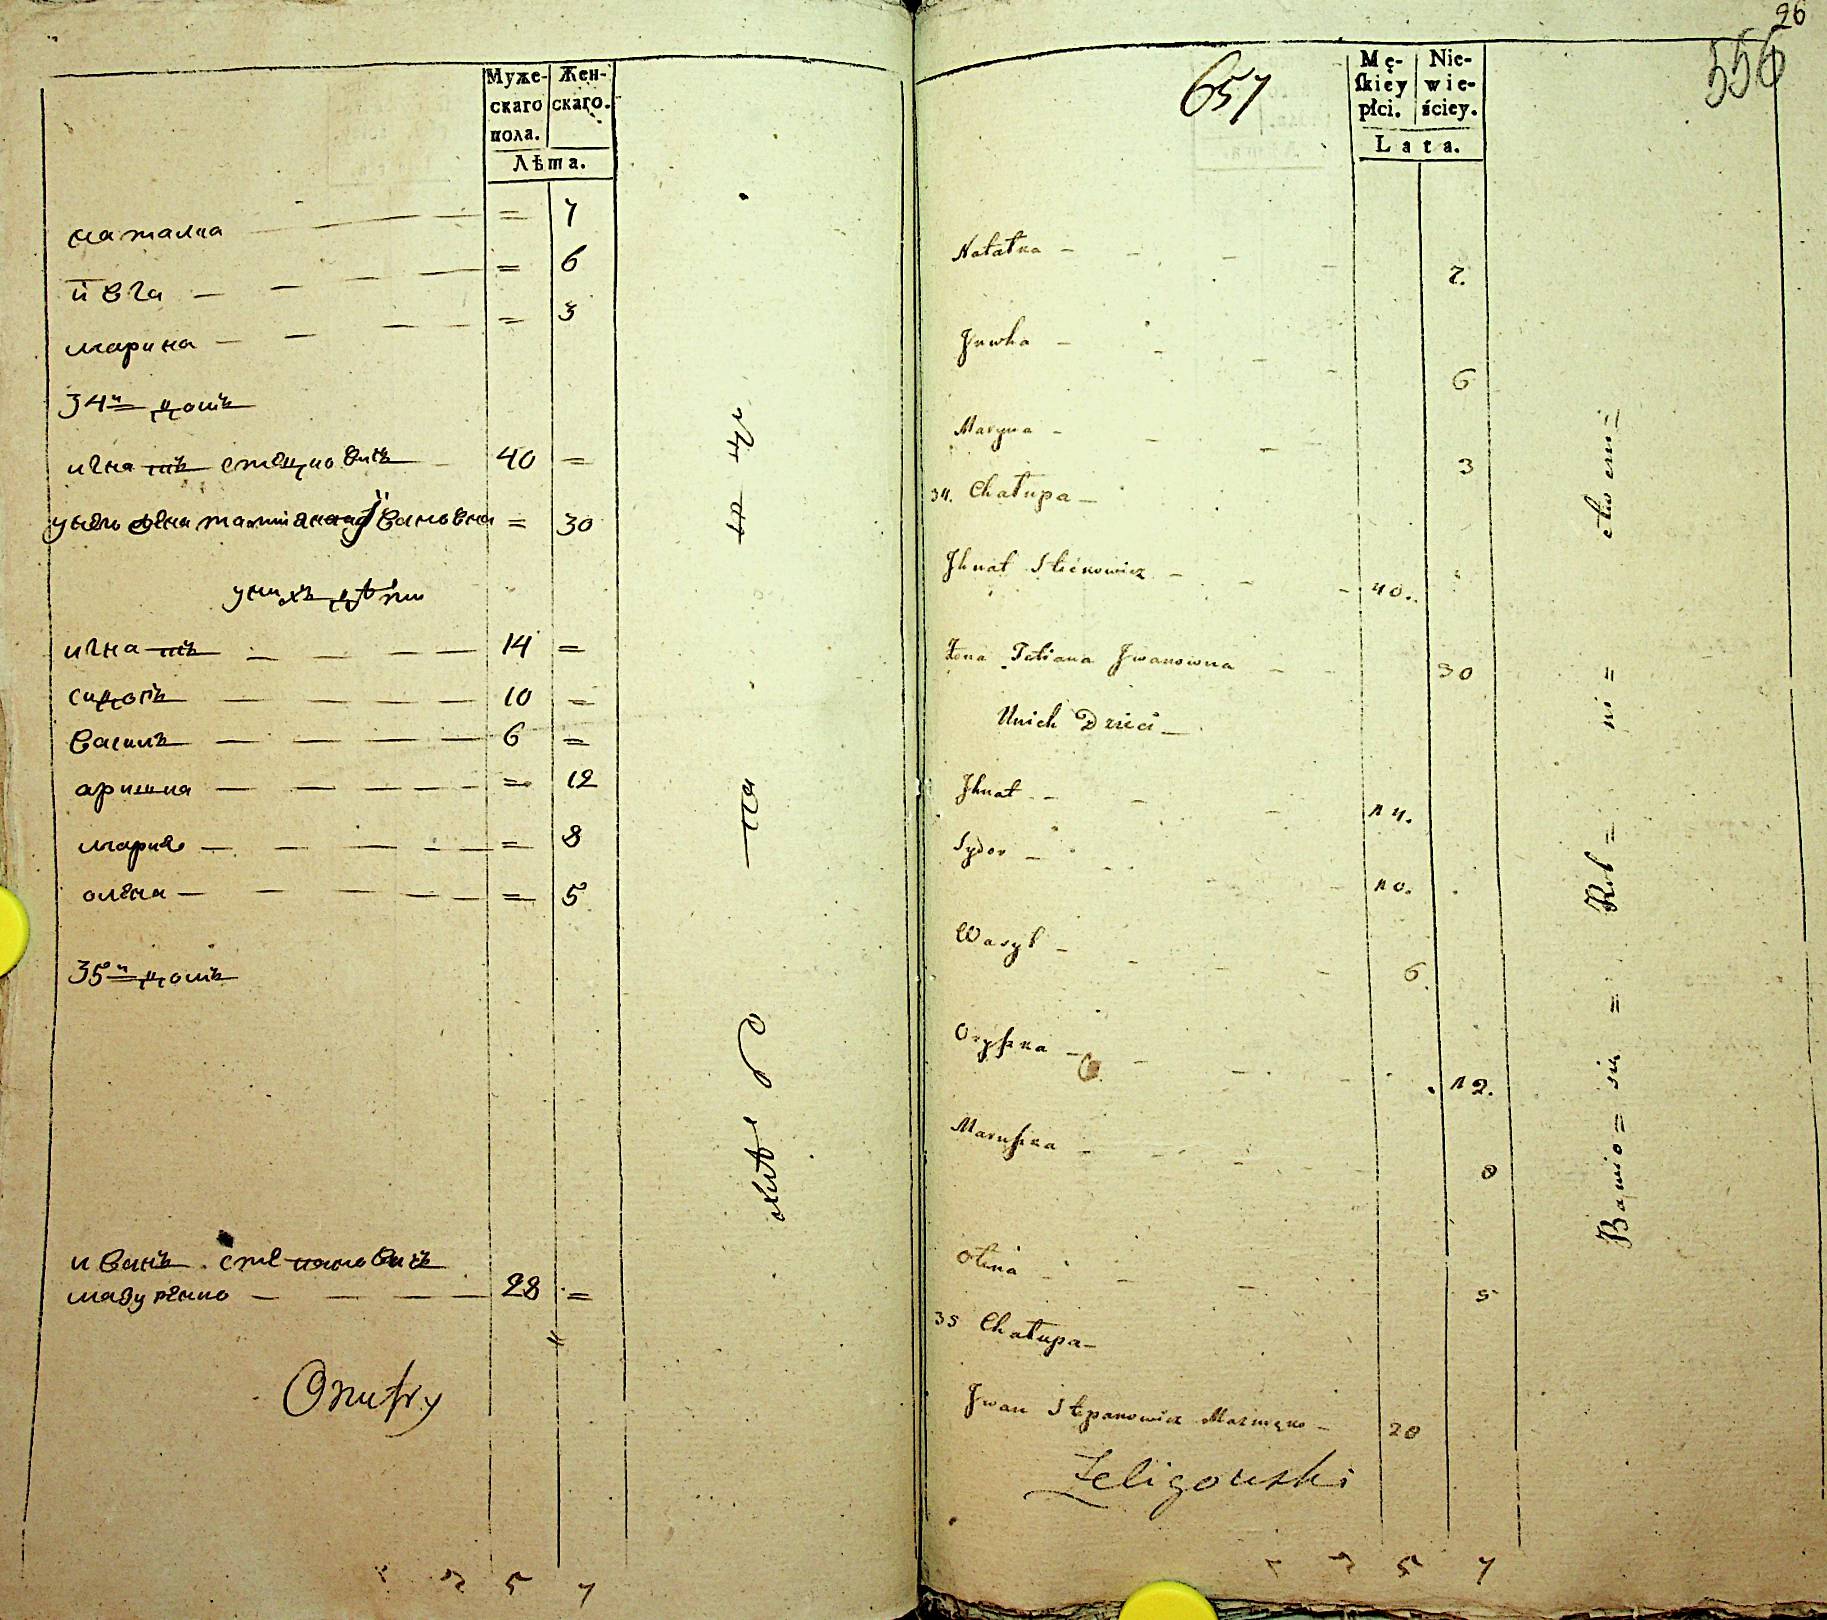 Муже-
скаго
пола.
Жен-
скаго.
Лѣта.
наталка = 7
ївга = 6
марина = 3
34й домъ
игнатъ стецковичъ 40 =
унего жена таттіяна Івановна = 30
унихъ дѣти
игнатъ 14 =
сидоръ 10 =
василь 6 =
аришка = 12
мария = 8
олена = 5
35й домъ
иванъ степановичъ
мазуренко 28 =
Onufry
26
556
657
Mę-
skiey
płci.
Nie-
wie-
ściey.
Lata.
Natałka 7.
Jewha 6
Maryna 3
34. Chałupa
Jhnat Stećkowicz 40.
Żona Tetiana Jwanowna 30
Unich Dzieci
Jhnat 14.
Sydor 10.
Wasyl 6.
Oryszka 12.
Maruszka 8
Olena 5
35 Chałupa
Jwan Stepanowicz 28
Zeligowski
5 7
5 7